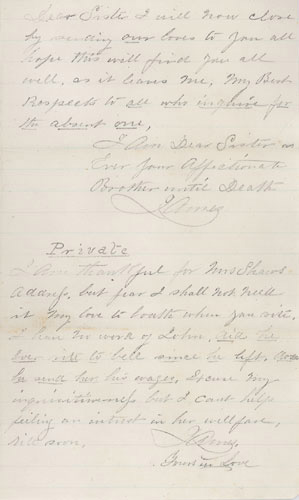 Dear Sister I will now close
by sending our loves to you all
hope this will find you all
well, as it leaves me, My Best
Respects to all who inquire for
the absent one,
I Am Dear Sister as
Ever your Affectionate
Brother until Death
James
Private
I Am thankful for Mrs Shaws
Address, but fear I shall not need
it My love to boath when you rite.
I hear no work of John, did he
Ever rite to bell since he left, does
he send her his wages, Excuse My
inquisitiveness but I cant help
feeling an intrest in her wellfare,
rite soon,
James
in Love